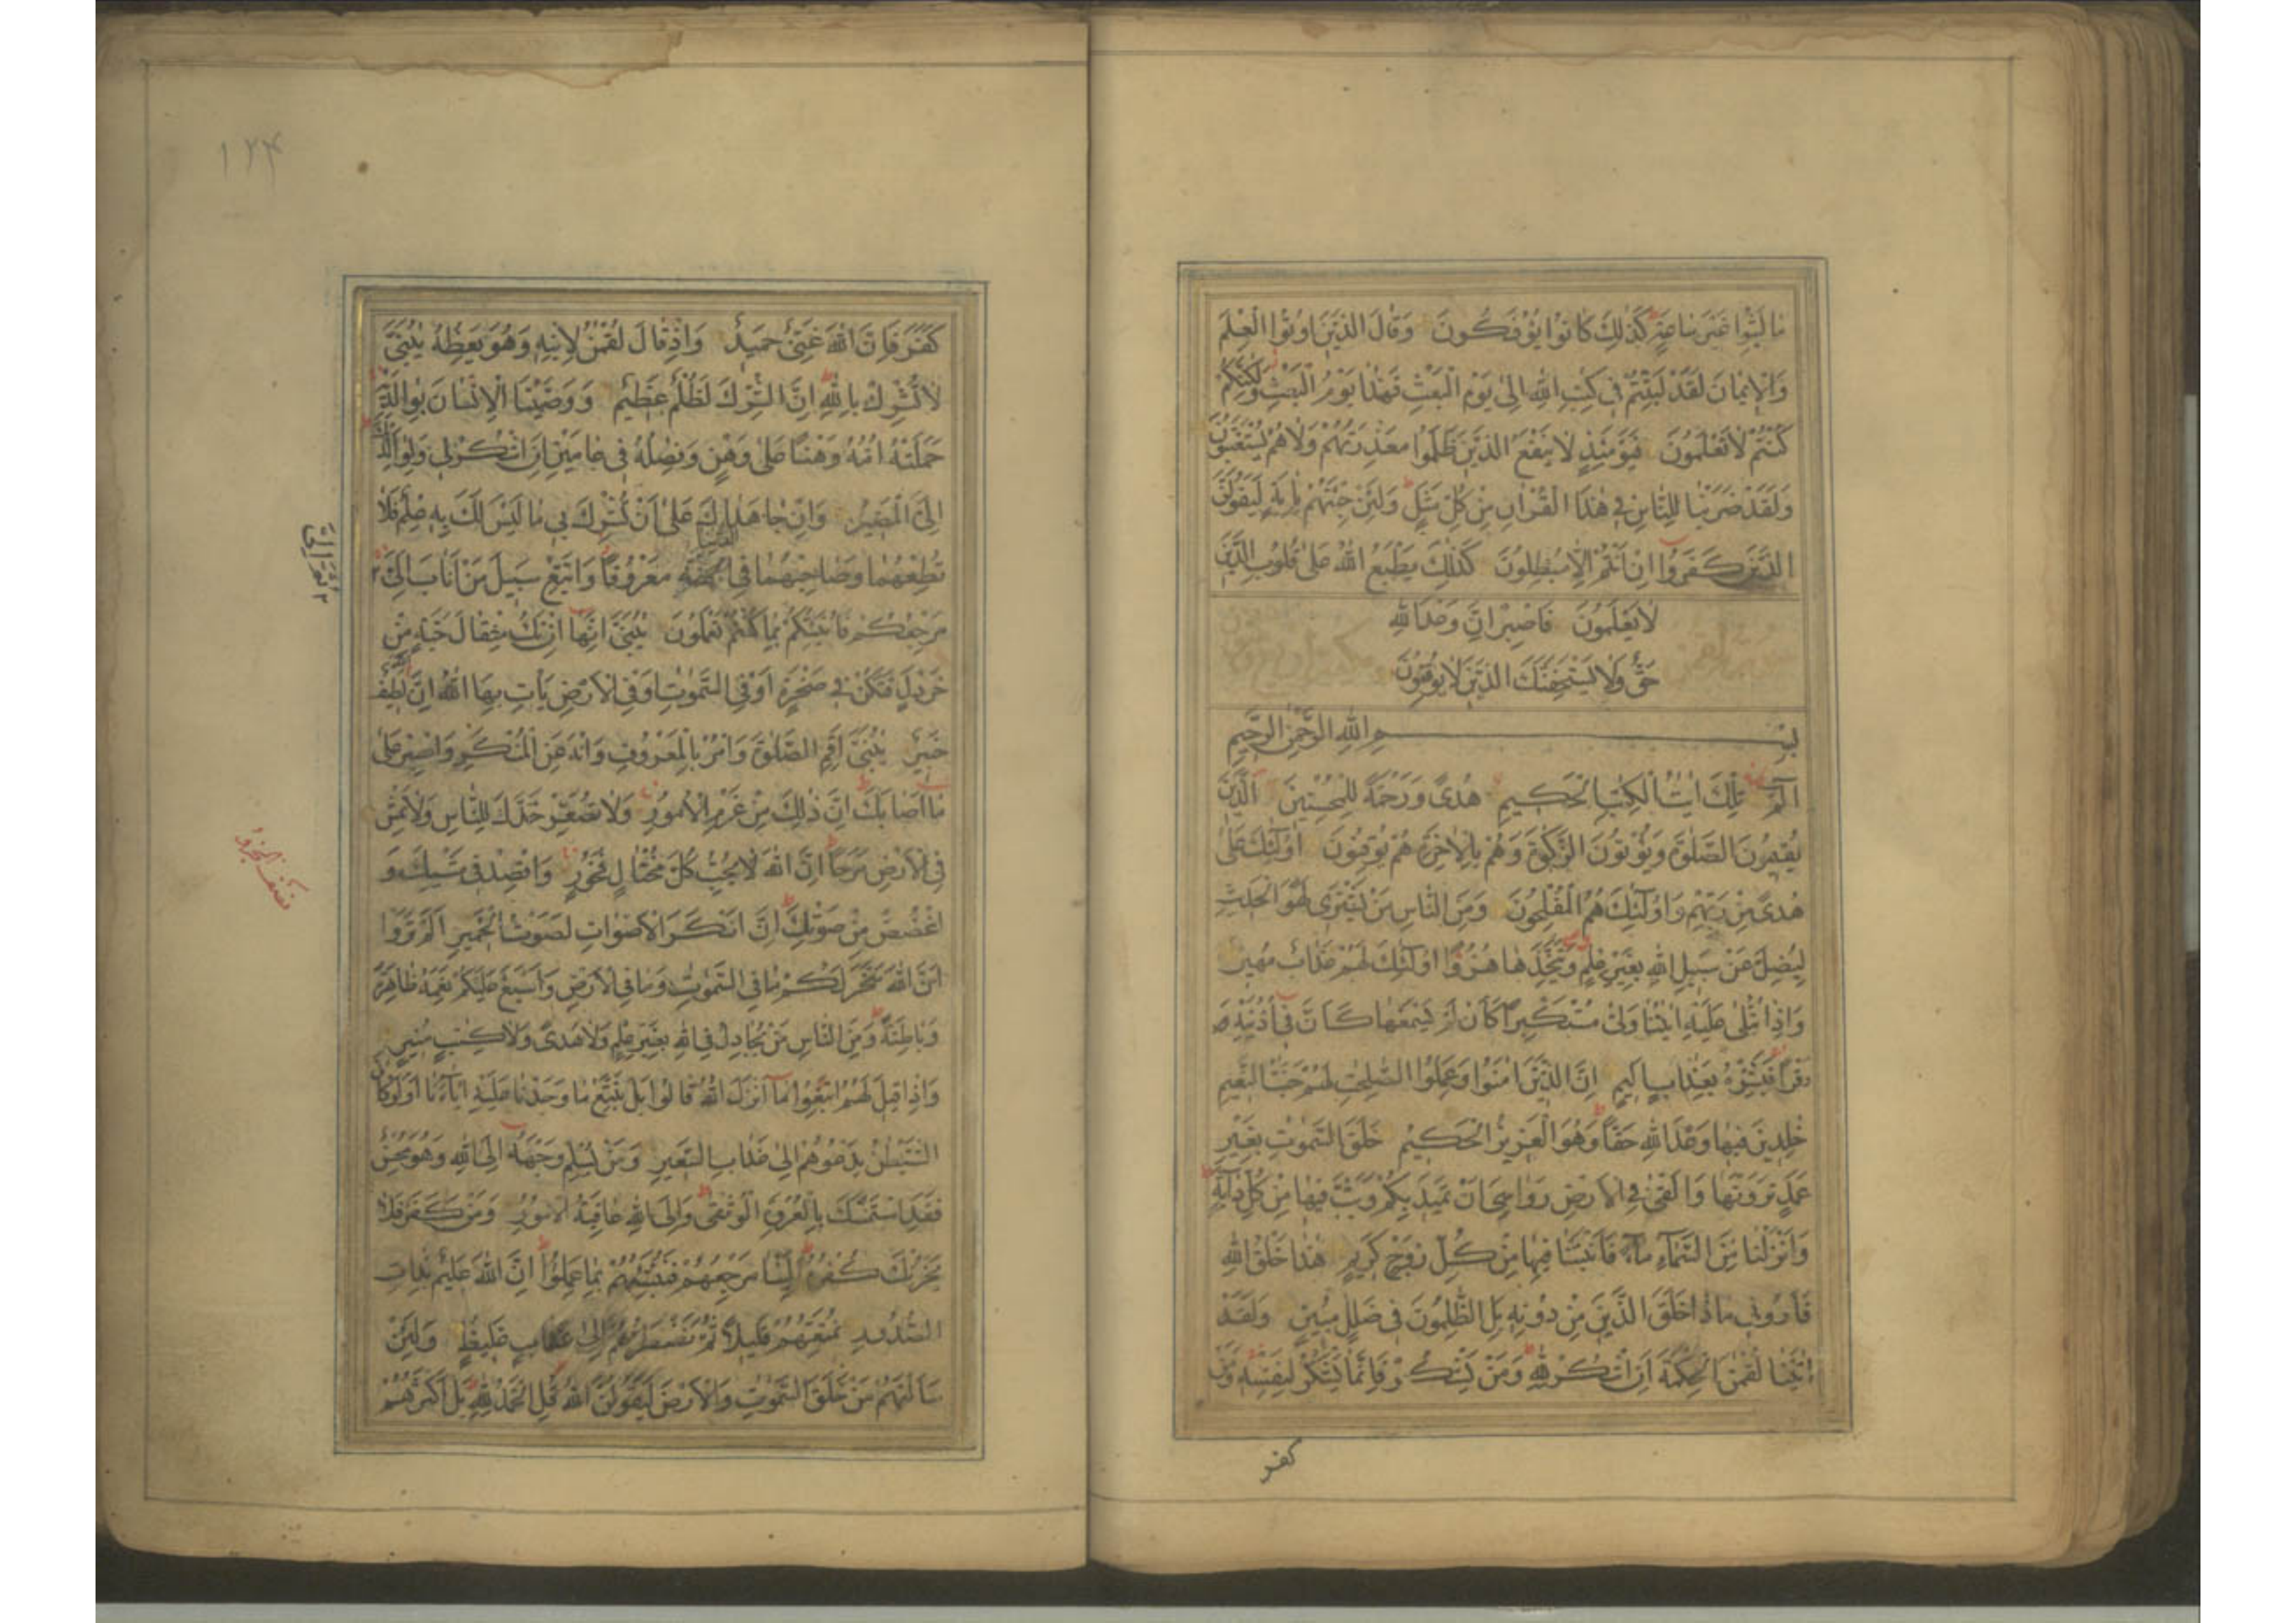 ما لبثوا غير ساعة كذلك كانوا يؤفكون وقال الذين اوتوا العلم
والايمان لقد لبثتم في كتب الله الى يوم البعث فهذا يوم البعث ولكنكم
كنتم لا تعلمون فيومئذ لا ينفع الذين ظلموا معذرتهم ولا هم يستعتبون
ولقد ضربنا للناس في هذا القران من كل مثل ولئن جئتهم باية ليقولن
الذين كفروا ان انتم الا مبطلون كذلك يطبع الله على قلوب الذين
لا يعلمون فاصبر ان وعد الله
حق ولا يستخفنك الذين لا يوقنون
سورة لقمن
بسم الله الرحمن الرحيم
الم تلك ايت الكتب الحكيم هدى ورحمة للمحسنين الذين
يقيمون الصلوة ويؤتون الزكوة وهم بالاخرة هم يوقنون اولئك على
هدى من ربهم واولئك هم المفلحون ومن الناس من يشترى لهو الحديث
ليضل عن سبيل الله بغير علم ويتخذها هزوا اولئك لهم عذاب مهين
واذا تتلى عليه ايتنا ولى مستكبرا كان لم يسمعها كان في اذنيه
وقرا فبشره بعذاب اليم ان الذين امنوا وعملوا الصلحت لهم جنت النعيم
خلدين فيها وعد الله حقا وهو العزيز الحكيم خلق السموت بغير
عمد ترونها والقى في الارض رواسي ان تميد بكم وبث فيها من كل دابة
وانزلنا من السماء ماء فانبتنا فيها من كل زوج كريم هذا خلق الله
فاروني ماذا خلق الذين من دونه بل الظلمون في ضلل مبين ولقد
اتينا لقمن الحكمة ان اشكر لله ومن يشكر فانما يشكر لنفسه ومن
كفر
١٢۴
كفر فان الله غني حميد واذ قال لقمن لابنه وهو يعظه يبني
لا تشرك بالله ان الشرك لظلم عظيم ووصينا الانسان بوالديه
حملته امه وهنا على وهن وفصله في عامين ان اشكر لي ولوالديك
الي المصير وان جاهداك على ان تشرك بي ما ليس لك به علم فلا
تطعهما وصاحبهما في الدنيا معروفا واتبع سبيل من اناب الي
مرجعكم فانبئكم بما كنتم تعملون يبني انها ان تك مثقال حبة من
خردل فتكن في صخرة او في السموت او في الارض يأت بها الله ان الله لطيف
خبير يبني اقم الصلوة وامر بالمعروف وانه عن المنكر واصبر على
ما اصابك ان ذلك من عزم الامور ولا تصعر خدك للناس ولا تمش
في الارض مرحا ان الله لا يحب كل مختال فخور واقصد في مشيك و
اغضض من صوتك ان انكر الاصوات لصوت الحمير الم تروا
ان الله سخر لكم ما في السموت وما في الارض واسبغ عليكم نعمه ظاهرة
وباطنة ومن الناس من يجادل في الله بغير علم ولا هدى ولا كتب منير
واذا قيل لهم اتبعوا ما انزل الله قالوا بل نتبع ما وجدنا عليه اباءنا اولو كان
الشيطن يدعوهم الى عذاب السعير ومن يسلم وجهه الى الله وهو محسن
فقد استمسك بالعروة الوثقى والى الله عاقبة الامور ومن كفر فلا
يحزنك كفره الينا مرجعهم فننبئهم بما عملوا ان الله عليم بذات
الصدور نمتعهم قليلا ثم نضطرهم الى عذاب غليظ ولئن
سالتهم من خلق السموت والارض ليقولن الله قل الحمد لله بل اكثرهم
ثم الي
نصف الجزو